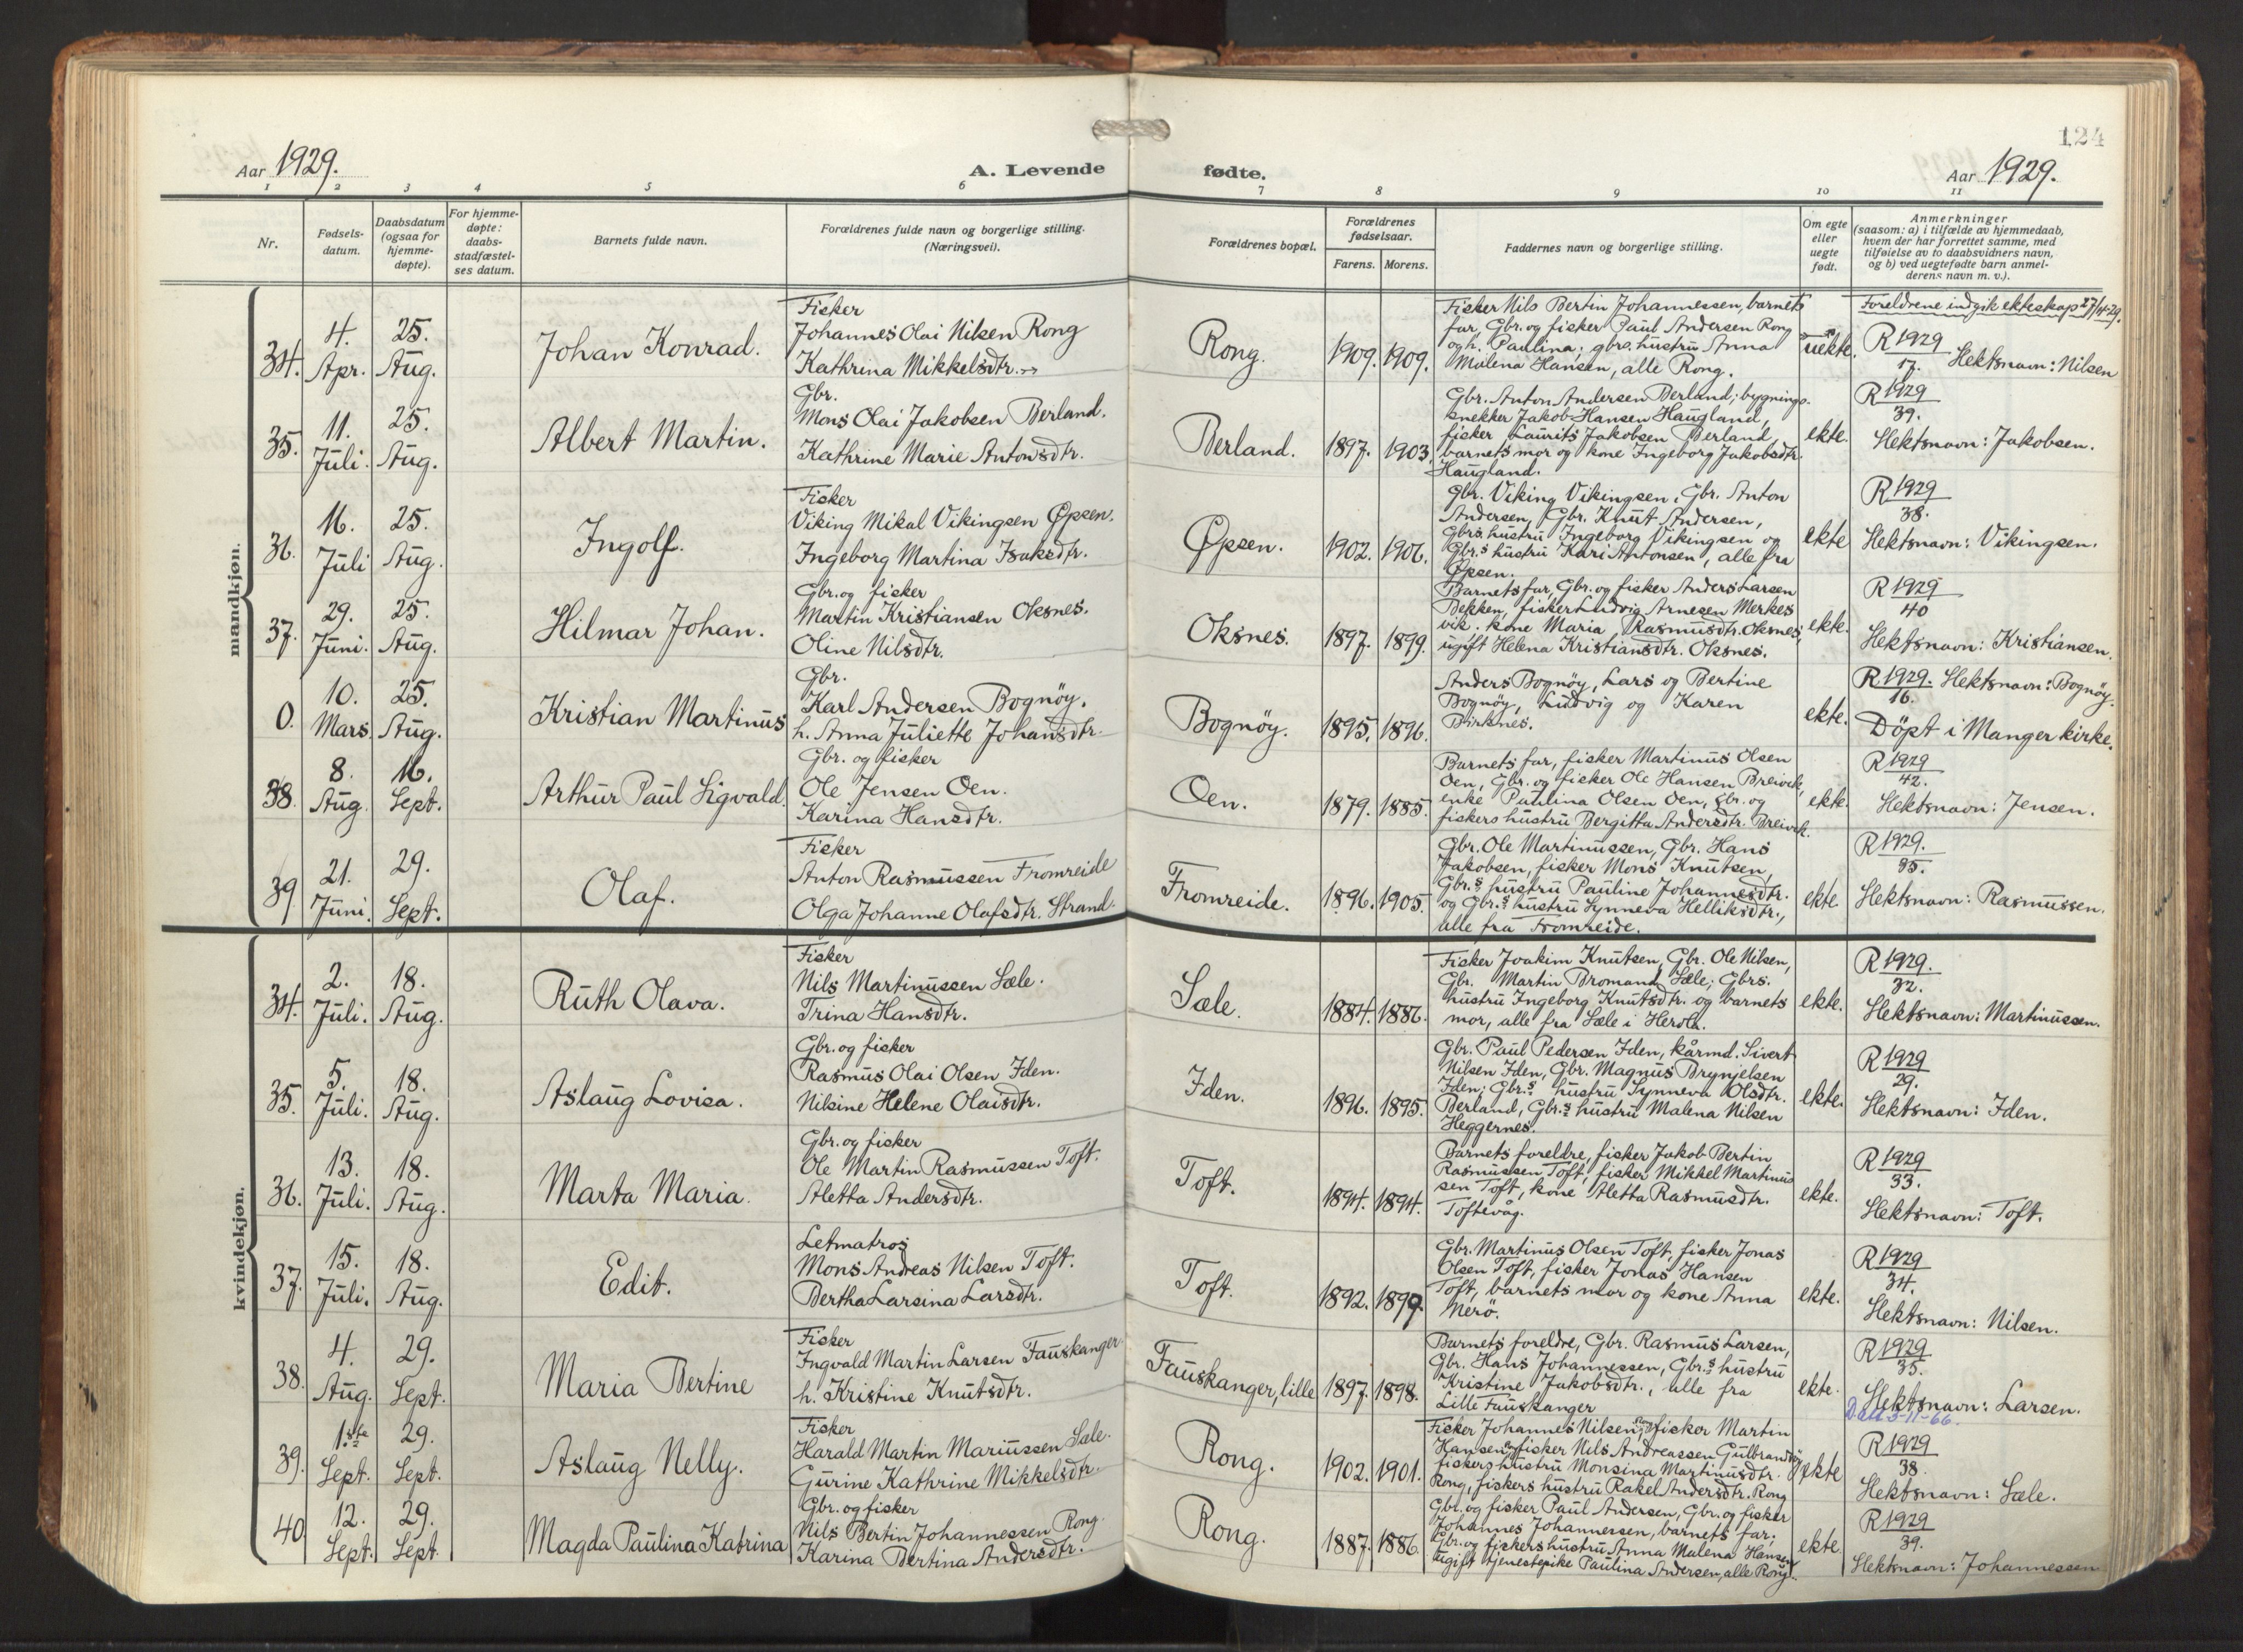 124
Aar 1929.
A. Levende fødte.
Aar 1929.
1 2 3 4 5 6 7 8 9 10 11
Nr.
Fødsels-
datum.
Daabsdatum
(ogsaa for
hjemme-
døpte).
For hjemme-
døpte:
daabs-
stadfæstel-
ses datum.
Barnets fulde navn.
Forældrenes fulde navn og borgerlige stilling.
(Næringsvei).
Forældrenes bopæl.
Forældrenes
fødselsaar.
Farens. Morens.
Faddernes navn og borgerlige stilling.
Om egte
eller
uegte
født.
Anmerkninger
(saasom: a) i tilfælde av hjemmedaab,
hvem der har forrettet samme, med
tilføielse av to daabsvidners navn,
og b) ved uegtefødte barn anmel-
derens navn m. v.).
mandkjøn.
34.
4.
Apr.
25.
Aug.
Johan Konrad.
Fisker
Johannes Olai Nilsen Rong
Kathrina Mikkelsdtr.
Rong.
1909. 1909.
Fisker Nils Bertin Johannessen, barnets
far, Gbr. og fisker Paul Andersen Rong
og h. Paulina; gbrs. hustru Anna
Malena Hansen, alle Rong.
uekte.
Foreldrene indgik ekteskap 27/4-29.
R 1929
17.
Slektsnavn: Nilsen
35.
11.
Juli.
25.
Aug.
Albert Martin.
Gbr.
Mons Olai Jakobsen Berland.
Kathrine Marie Antonsdtr.
Berland.
1897. 1903.
Gbr. Anton Andersen Berland; bygnings-
snekker Jakob Hansen Haugland,
fisker Laurits Jakobsen Berland,
barnets mor og kone Ingeborg Jakobsdtr.
Haugland.
ekte.
R 1929
39.
Slektsnavn: Jakobsen.
36.
16.
Juli
25.
Aug.
Ingolf.
Fisker
Viking Mikal Vikingsen Øpsen.
Ingeborg Martina Isaksdtr.
Øpsen.
1902. 1906.
Gbr. Viking Vikingsen, Gbr. Anton
Andersen, Gbr. Knut Andersen,
Gbrs. hustru Ingeborg Vikingsen og
Gbr.s hustru Kari Antonsen, alle fra
Øpsen.
ekte
R 1929
38.
Slektsnavn: Vikingsen.
37.
29.
Juni.
25.
Aug.
Hilmar Johan.
Gbr. og fisker
Martin Kristiansen Oksnes.
Oline Nilsdtr.
Oksnes.
1897. 1899.
Barnets far, Gbr. og fisker Anders Larsen
Bekken, fisker Ludvig Arnesen Merkes
vik. kone Maria Rasmusdtr. Oksnes,
ugift Helena Kristiansdtr. Oksnes.
ekte.
R 1929
40
Slektsnavn: Kristiansen.
0.
10.
Mars.
25.
Aug.
Kristian Martinus
Gbr.
Karl Andersen Bognöy.
h. Anna Juliette Johansdtr.
Bognöy.
1895. 1896.
Anders Bognöy, Lars og Bertine
Bognöy, Ludvig og Karen
Birknes.
ekte.
R 1929. Slektsnavn: Bognöy.
16.
Döpt i Manger kirke.
38.
8.
Aug.
16.
Sept.
Arthur Paul Sigvald.
Gbr. og fisker
Ole Jensen Oen.
Karina Hansdtr.
Oen.
1879. 1885.
Barnets far, fisker Martinus Olsen
Oen, Gbr. og fisker Ole Hansen Breivik,
enke Paulina Olsen Oen, gbr. og
fiskers hustru Bergitta Andersdtr. Breivik.
ekte.
R 1929
42.
Slektsnavn: Jensen.
39
21.
Juni.
29.
Sept.
Olaf.
Fisker
Anton Rasmussen Fromreide
Olga Johanne Olafsdtr. Strand.
Fromreide.
1896. 1905.
Gbr. Ole Martinussen, Gbr. Hans
Jakobsen, fisker Mons Knutsen,
Gbr.s hustru Pauline Johannesdtr.
og Gbr.s hustru Synneva Helliksdtr.,
alle fra Fromreide.
ekte.
R 1929.
35.
Slektsnavn: Rasmussen.
kvindekjøn.
34.
2.
Juli.
18.
Aug.
Ruth Olava.
Fisker
Nils Martinussen Sæle.
Trina Hansdtr.
Sæle.
1884. 1886.
Fisker Joakim Knutsen, Gbr. Ole Nilsen,
Gbr. Martin Bromand Sæle; Gbrs.
hustru Ingeborg Knutsdtr. og barnets
mor, alle fra Sæle i Herdla.
ekte.
R 1929.
32.
Slektsnavn: Martinussen.
35.
5.
Juli.
18.
Aug.
Aslaug Lovisa.
Gbr. og fisker
Rasmus Olai Olsen Iden.
Nilsine Helene Olaisdtr.
Iden.
1896. 1895.
Gbr. Paul Pedersen Iden, kårmd. Sivert
Nilsen Iden, Gbr. Magnus Brynjelsen
Iden; Gbr.s hustru Synneva Olsdtr.
Berland, Gbr.s hustru Malena Nilsen
Heggernes.
ekte.
R 1929
29.
Slektsnavn: Iden.
36.
13.
Juli.
18.
Aug.
Marta Maria.
Gbr. og fisker
Ole Martin Rasmussen Toft.
Aletta Andersdtr.
Toft.
1894. 1894.
Barnets foreldre, fisker Jakob Bertin
Rasmussen Toft, fisker Mikkel Martinus
sen Toft, kone Aletta Rasmusdtr.
Toftevåg.
ekte.
R 1929
33.
Slektsnavn: Toft.
37.
15.
Juli.
18.
Aug.
Edit.
Letmatros
Mons Andreas Nilsen Toft.
Bertha Larsina Larsdtr.
Toft.
1892. 1899.
Gbr. Martinus Olsen Toft, fisker Jonas
Olsen Toft, fisker Jonas Hansen
Toft, barnets mor og kone Anna
Nerö.
ekte.
R 1929
34.
Slektsnavn: Nilsen.
38.
4.
Aug.
29.
Sept.
Maria Bertine
Fisker
Ingvald Martin Larsen Fauskanger
h. Kristine Knutsdtr.
Fauskanger, lille
1897. 1898.
Barnets foreldre, Gbr. Rasmus Larsen,
Gbr. Hans Johannessen, Gbr.s hustru
Kristine Jakobsdtr., alle fra
Lille Fauskanger
ekte.
R 1929
35.
Slektsnavn: Larsen.
39.
1.ste
Sept.
29.
Sept.
Aslaug Nelly.
Fisker
Harald Martin Mariussen Sæle.
Gurine Kathrine Mikkelsdtr.
Rong.
1902. 1901.
Fisker Johannes Nilsen, fisker Martin
Hansen, fisker Nils Andreassen Gulbrandsöy
fiskers hustru Monsina Martinusdtr.
Rong, fiskers hustru Rakel Andersdtr. Rong
ekte
5-11-66.
R 1929
38.
Slektsnavn: Sæle.
40.
12.
Sept.
29.
Sept.
Magda Paulina Katrina
Gbr. og fisker
Nils Bertin Johannessen Rong.
Karina Bertina Andersdtr.
Rong.
1887. 1886.
Gbr. og fisker Paul Andersen, Gbr. og fisker
Johannes Johannessen, barnets far;
Gbr. og fiskers hustru Anna Malena Hansen,
ugift tjenestepike Paulina Andersen, alle Rong.
ekte.
R 1929
39.
Slektsnavn: Johannessen